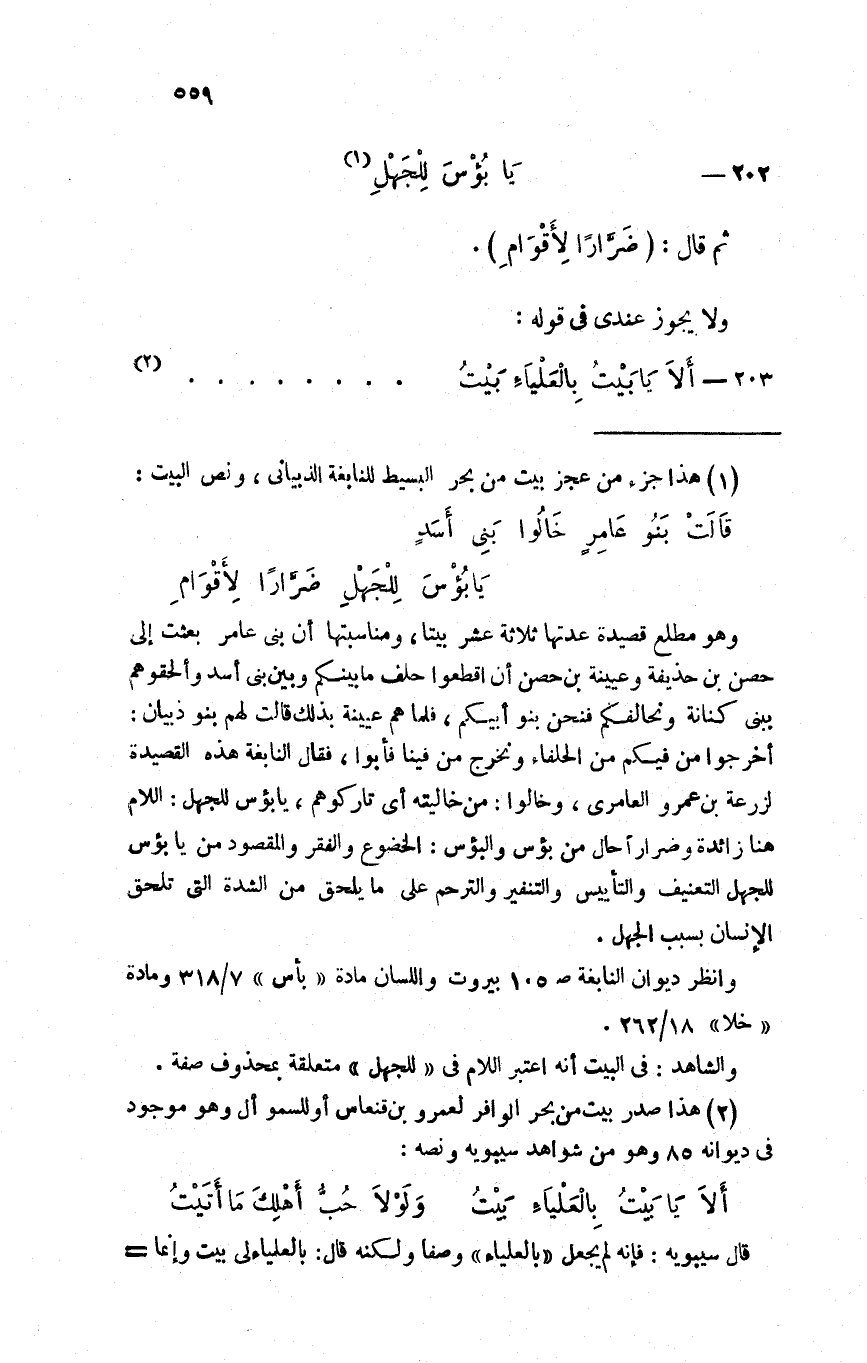 ٥٥٩
٢٠٢ — يَا بُؤْسَ لِلْجَهْلِ (١)
ثم قال : ( ضَرَّارًا لِأَقْوَامِ ) .
ولا يجوز عندى فى قوله :
٢٠٣ — أَلاَ يَا بَيْتُ بِالْعَلْيَاءِ بَيْتُ . . . . . . . . (٢)
(١) هذا جزء من عجز بيت من بحر البسيط للنابغة الذبيانى ، ونص البيت :
قَالَتْ بَنُو عَامِرٍ خَالُوا بَنِى أَسَدٍ
يَابُؤْسَ لِلْجَهْلِ ضَرَّارًا لِأَقْوَامِ
وهو مطلع قصيدة عدتها ثلاثة عشر بيتا ، ومناسبتها أن بنى عامر بعثت إلى
حصن بن حذيفة وعيينة بن حصن أن اقطعوا حلف مابينكم وبين بنى أسد وألحقوهم
ببنى كنانة ونحالفكم فنحن بنو أبيكم ، فلما هم عيينة بذلك قالت لهم بنو ذبيان :
أخرجوا من فيكم من الحلفاء ونخرج من فينا فأبوا ، فقال النابغة هذه القصيدة
لزرعة بن عمرو العامرى ، وخالوا : من خاليته أى تاركوهم ، يابؤس للجهل : اللام
هنا زائدة وضرارا حال من بؤس والبؤس : الخضوع والفقر والمقصود من يا بؤس
للجهل التعنيف والتأييس والتنفير والترحم على ما يلحق من الشدة التى تلحق
الإنسان بسبب الجهل .
وانظر ديوان النابغة صـ ١٠٥ بيروت واللسان مادة « بأس » ٣١٨/٧ ومادة
« خلا» ٢٦٢/١٨ .
والشاهد : فى البيت أنه اعتبر اللام فى « للجهل » متعلقة بمحذوف صفة .
(٢) هذا صدر بيت من بحر الوافر لعمرو بن قنعاس أو للسموأل وهو موجود
فى ديوانه ٨٥ وهو من شواهد سيبويه ونصه :
أَلاَ يَا بَيْتُ بِالْعَلْيَاءِ بَيْتُ وَلَوْلاَ حُبُّ أَهْلِكَ مَا أَتَيْتُ
قال سيبويه : فإنه لم يجعل «بالعلياء» وصفا ولكنه قال: بالعلياء لى بيت وإنما =